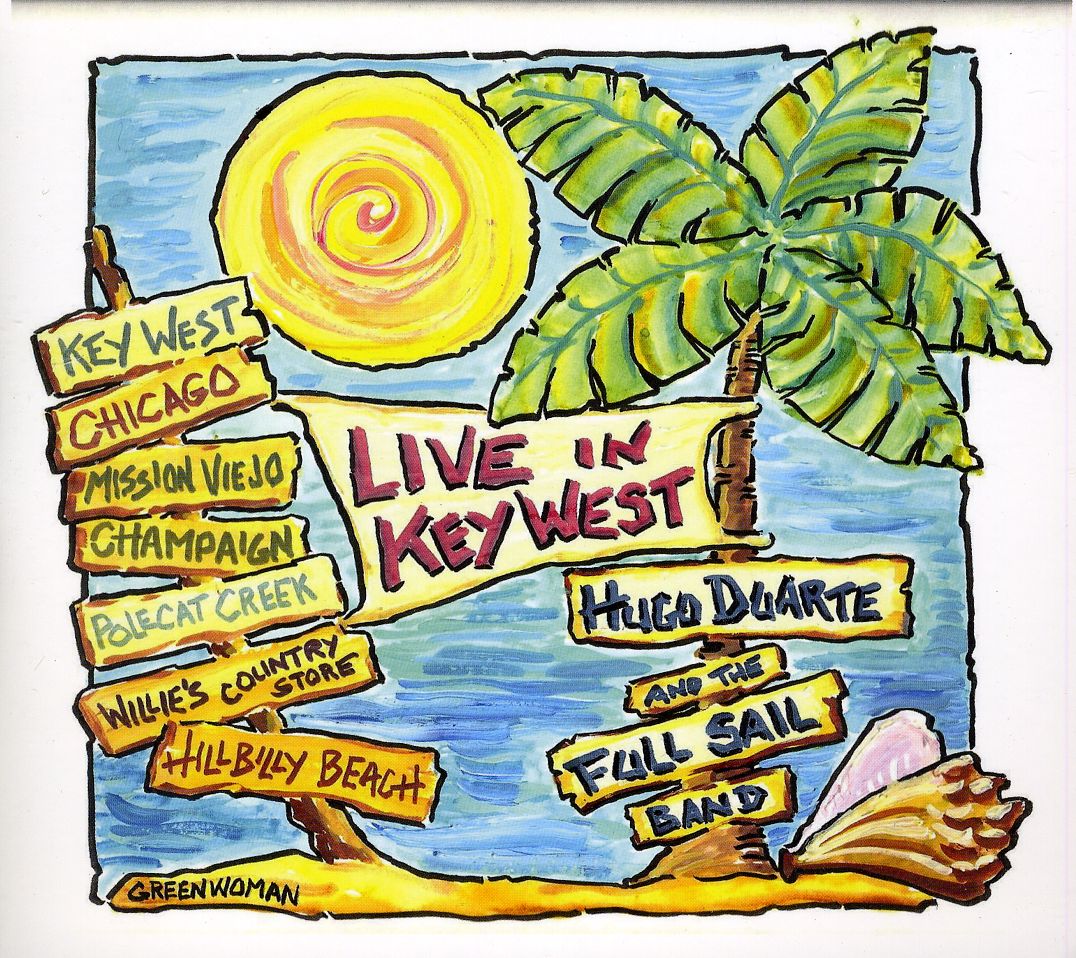 KEY WEST
CHICAGO
MISSION VIEJO
CHAMPAIGN
POLECAT CREEK
WILLIE'S COUNTRY
STORE
HILLBILLY BEACH
LIVE IN
KEY WEST
HUGO DUARTE
AND THE
FULL SAIL
BAND
GREENWOMAN